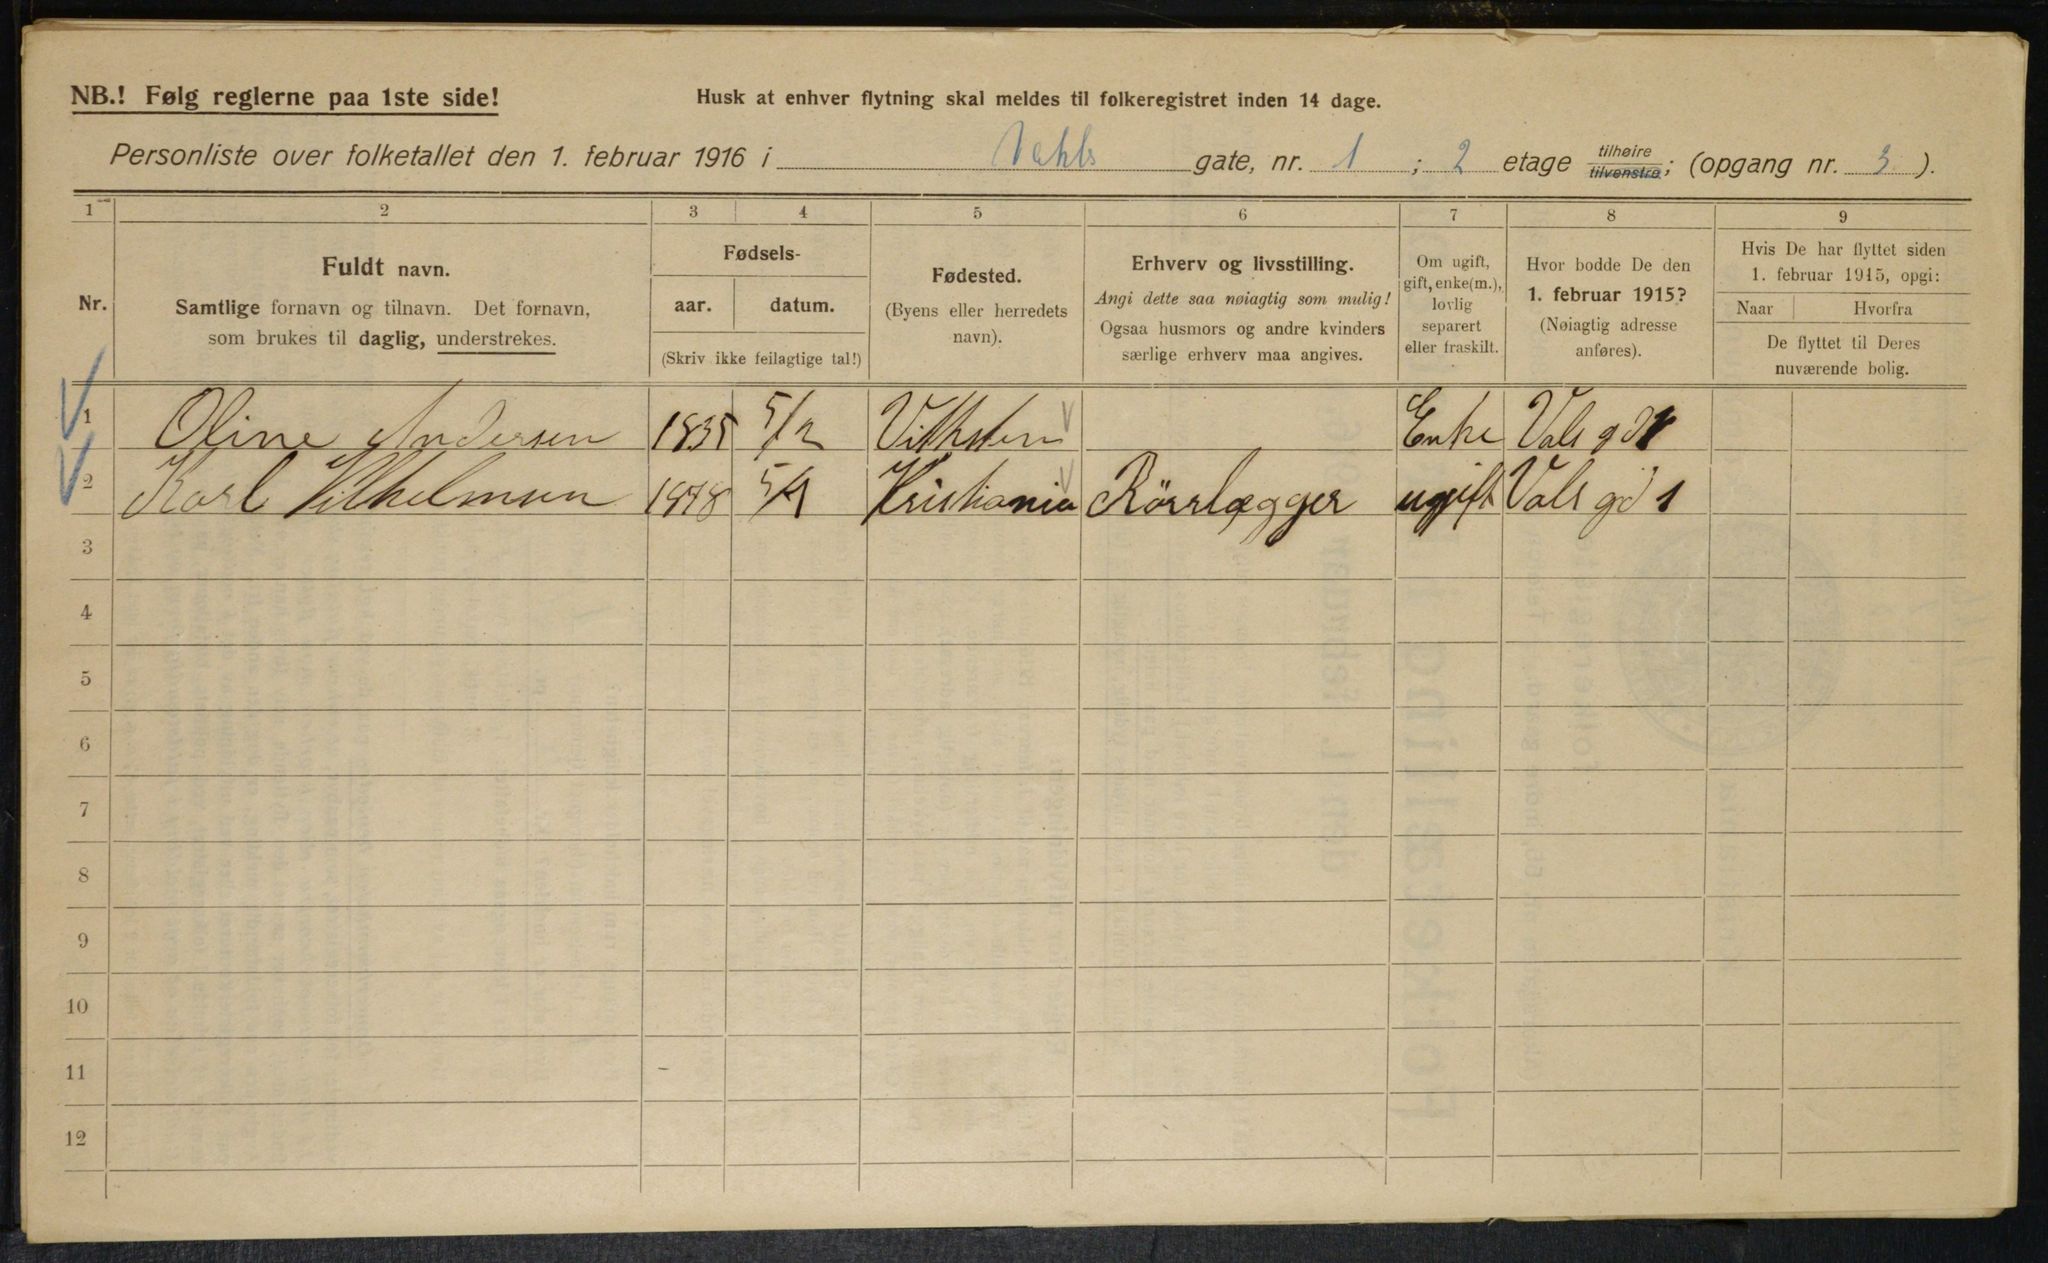 NB.! Følg reglerne paa 1ste side!
Husk at enhver flytning skal meldes til folkeregistret inden 14 dage.
Personliste over folketallet den 1. februar 1916 i Vahls gate, nr. 1 ; 2 etage tilhøire tilvenstre; (opgang nr. 3 ).
1 2 3 4 5 6 7 8 9
Nr.
Fuldt navn.
Samtlige fornavn og tilnavn. Det fornavn,
som brukes til daglig, understrekes.
Fødsels-
aar. datum.
(Skriv ikke feilagtige tal!)
Fødested.
(Byens eller herredets
navn).
Erhverv og livsstilling.
Angi dette saa nøiagtig som mulig!
Ogsaa husmors og andre kvinders
særlige erhverv maa angives.
Om ugift,
gift, enke(m.),
lovlig
separert
eller fraskilt.
Hvor bodde De den
1. februar 1915?
(Nøiagtig adresse
anføres).
Hvis De har flyttet siden
1. februar 1915, opgi:
Naar Hvorfra
De flyttet til Deres
nuværende bolig.
1 Oline Andersen 1835 5/2 Enke Vals gd 1
2 Karl Vilhelmsen 1878 Kristiania Rörrlægger ugift Vals gd 1
3
4
5
6
7
8
9
10
11
12